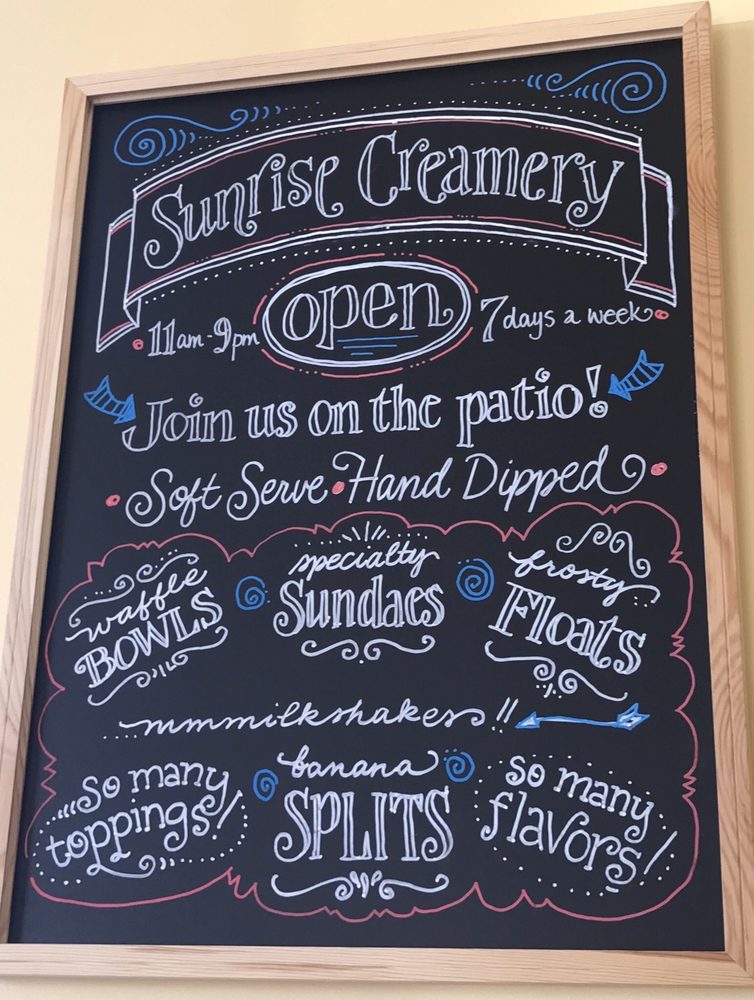 Sunrise Creamery
11am-9pm open 7 days a week
Join us on the patio!
Soft Serve • Hand Dipped
waffle BOWLS
specialty Sundaes
frosty Floats
...mmmilkshakes!!
so many toppings!
banana SPLITS
so many flavors!